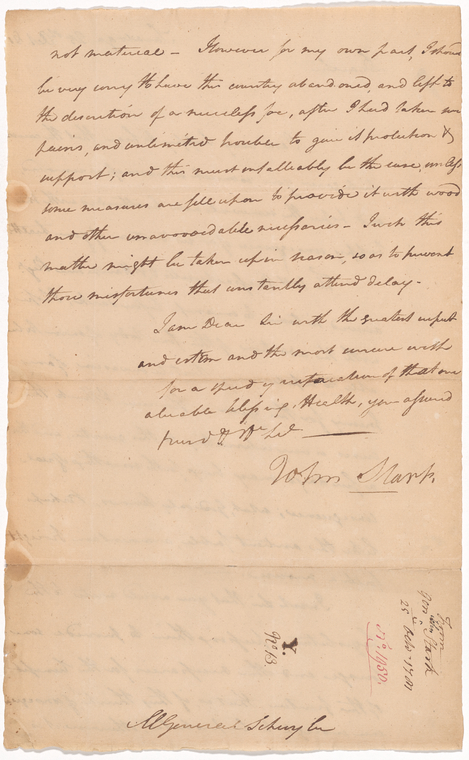 not material – However for my own part, I should
be very sorry to have this country abandoned, and left to
the discretion of a merciless foe, after I had taken such
pains, and unlimited trouble to give it protection &
support; and this must infalleably be the case, unless
some measures are fell upon to provide it with wood
and other unavoidable necessaries – I wish this
matter might be taken up in season, so as to prevent
those misfortunes that constantly attend delay –
I am Dear Sir with the greatest respect
and esteem and the most sincere wish
for a speedy restoration of that one
valuable blessing, Health, your assured
friend &
John Stark
From
Gen Stark
25 Octbr 1781
No. 1950.
Y.
No. 13
M General Schuyler